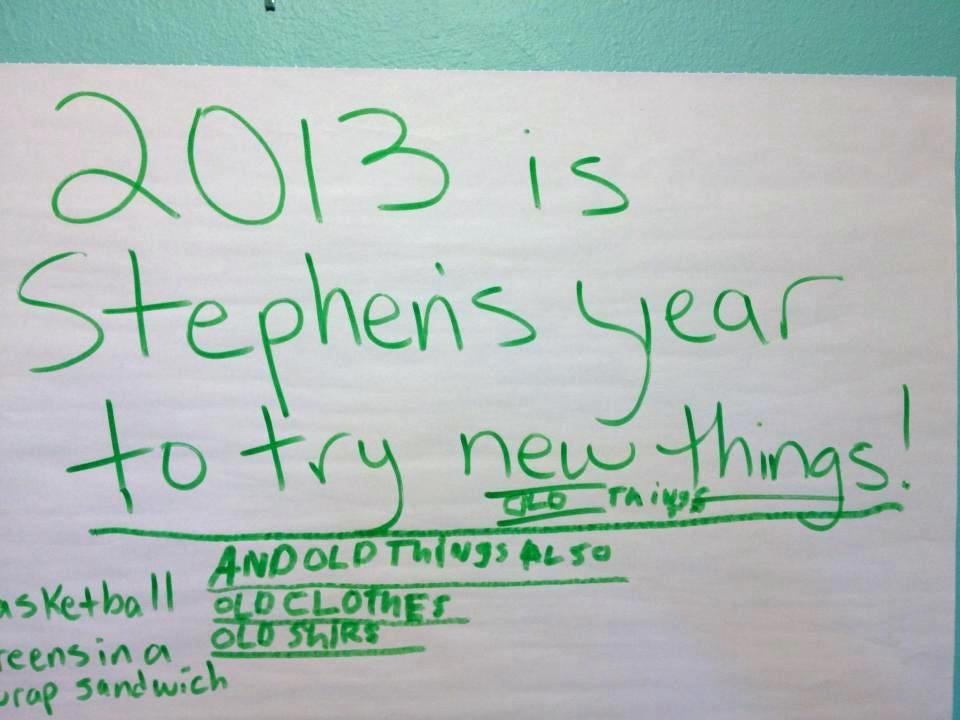 2013 is
Stephen's year
to try new things!
OLD Things
AND OLD Things ALSO
OLD CLOTHES
OLD SHIRS
asketball
reens in a
wrap sandwich